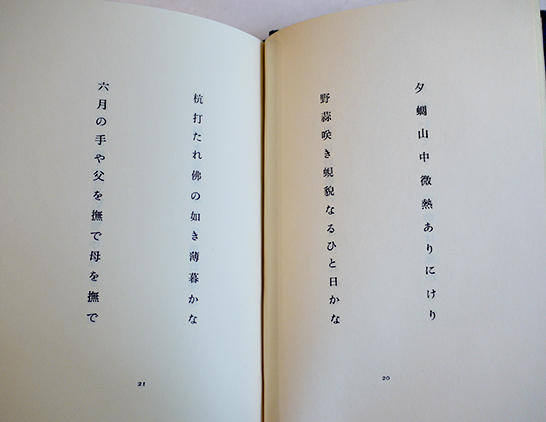 夕蜩山中微熱ありにけり
野蒜咲き蜆貌なるひと日かな
20
杭打たれ佛の如き薄暮かな
六月の手や父を撫で母を撫で
21